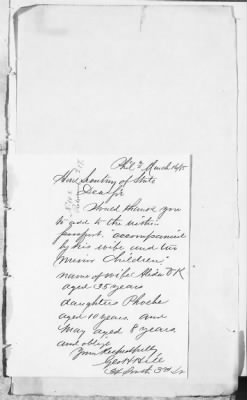 Phila March 16/85
Hon Secretary of State
Dear Sir
Would thank you
to add to the within
passport "accompanied
by his wife and two
minor children"
name of wife
aged 35 years
daughters Phoebe
aged 10 years and
May aged 8 years
and oblige
Yours Respectfully
Geo W